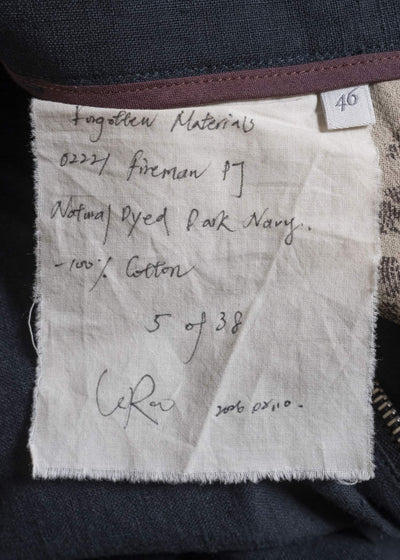 46
Forgotten Materials
02221 fireman PJ
Natural Dyed Dark Navy.
-100% Cotton
5 of 38
2026.02.10.